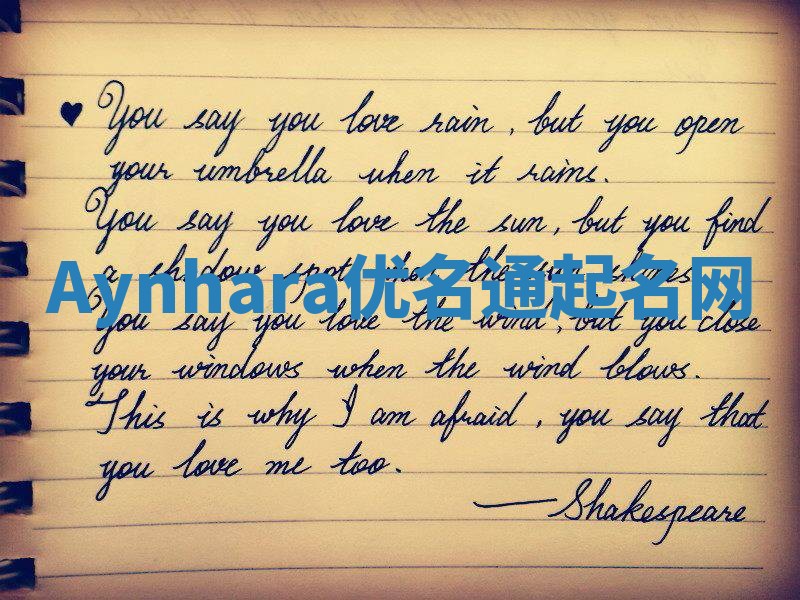 ♥ You say you love rain, but you open
your umbrella when it rains.
You say you love the sun, but you find
a shadow spot when the sun shines
Aynhara优名通起名网
You say you love the wind, but you close
your windows when the wind blows.
This is why I am afraid, you say that
you love me too.
— Shakespeare